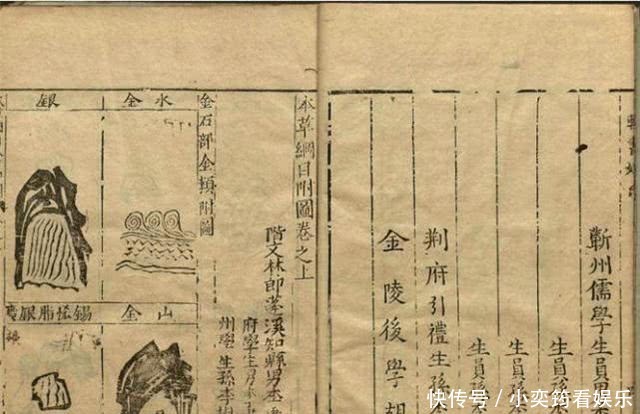 蘄州儒學生員男
生員孫
生員孫
生員孫
荆府引禮生孫
金陵後學胡
本草綱目附圖卷之上
階文林郎蓬溪知縣男
府學生
州學生孫李
金石部金類附圖
水金
銀
山金
錫恡脂銀
快传号／小奕筠看娱乐